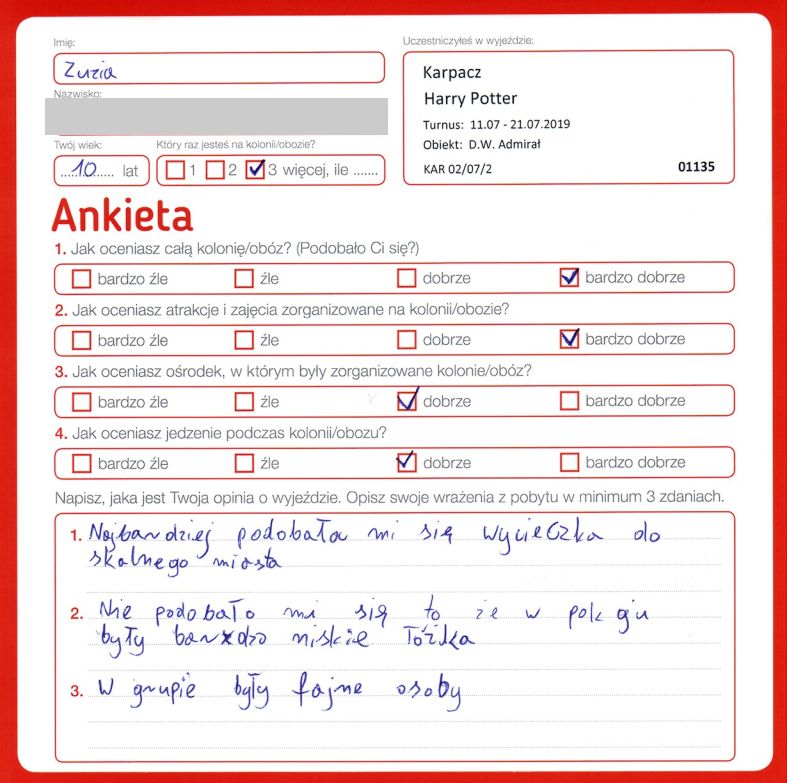 Imię:
Zuzia
Nazwisko:
Twój wiek:
10 lat
Który raz jesteś na kolonii/obozie?
1 2 3 więcej, ile .......
Uczestniczyłeś w wyjeździe:
Karpacz
Harry Potter
Turnus: 11.07 - 21.07.2019
Obiekt: D.W. Admirał
KAR 02/07/2 01135
Ankieta
1. Jak oceniasz całą kolonię/obóz? (Podobało Ci się?)
bardzo źle źle dobrze bardzo dobrze
2. Jak oceniasz atrakcje i zajęcia zorganizowane na kolonii/obozie?
bardzo źle źle dobrze bardzo dobrze
3. Jak oceniasz ośrodek, w którym były zorganizowane kolonie/obóz?
bardzo źle źle dobrze bardzo dobrze
4. Jak oceniasz jedzenie podczas kolonii/obozu?
bardzo źle źle dobrze bardzo dobrze
Napisz, jaka jest Twoja opinia o wyjeździe. Opisz swoje wrażenia z pobytu w minimum 3 zdaniach.
1. Najbardziej podobała mi się wycieczka do
skalnego miasta
2. Nie podobało mi się to że w pokoju
były bardzo niskie łóżka
3. W grupie były fajne osoby